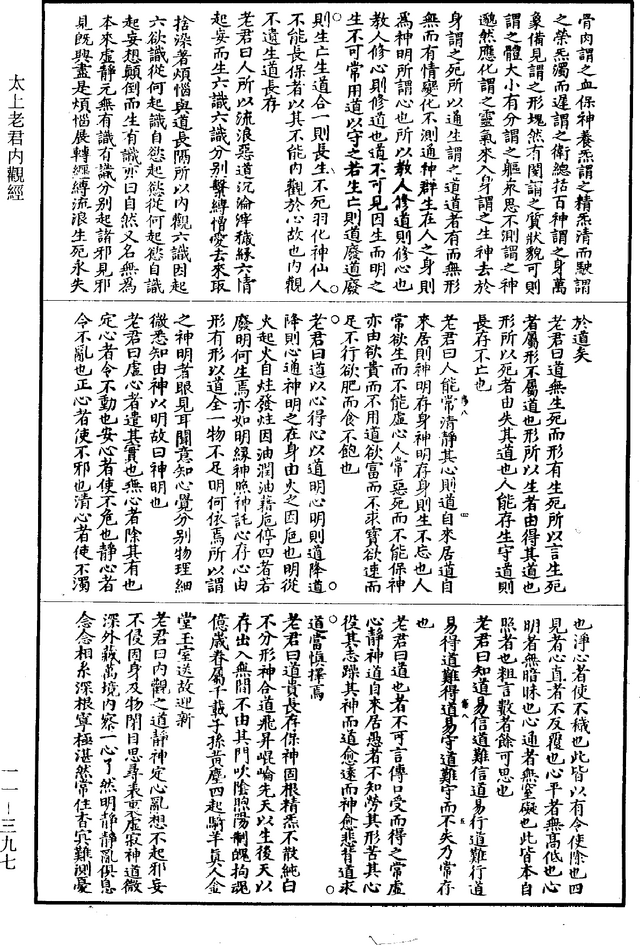 太上老君內觀經
骨肉謂之血保神養炁謂之精炁清而駛謂
之榮炁濁而遲謂之衛總括百神謂之身萬
象備見謂之形塊然有閡謂之質狀貌可則
謂之體大小有分謂之軀衆思不測謂之神
邈然應化謂之靈氣來入身謂之生神去於
身謂之死所以通生謂之道道者有而無形
無而有情變化不測通神群生在人之身則
爲神明所謂心也所以教人修道則修心也
教人修心則修道也道不可見因生而明之
生不可常用道以守之若生亡則道廢道廢
則生亡生道合一則長生不死羽化神仙人
不能長保者以其不能內觀於心故也內觀
不遺生道長存
老君曰人所以流浪惡道沉淪滓穢緣六情
起妄而生六識六識分別繫縛憎愛去來取
捨染著煩惱與道長隔所以內觀六識因起
六欲識從何起識自慾起慾從何起慾自識
起妄想顛倒而生有識亦曰自然又名無爲
本來虛靜元無有識有識分別起諸邪見邪
見既興盡是煩惱展轉纏縛流浪生死永失
於道矣
老君曰道無生死而形有生死所以言生死
者屬形不屬道也形所以生者由得其道也
形所以死者由失其道也人能存生守道則
長存不亡也
老君曰人能常清靜其心則道自來居道自
來居則神明存身神明存身則生不忘也人
常欲生而不能虛心人常惡死而不能保神
亦由欲貴而不用道欲富而不求寶欲速而
足不行欲肥而食不飽也
老君曰道以心得心以道明心明則道降道
降則心通神明之在身由火之因巵也明從
火起火自炷發炷因油潤油藉巵停四者若
廢明何生焉亦如明緣神照神託心存心由
形有形以道全一物不足明何依焉所以謂
之神明者眼見耳聞意知心覺分別物理細
微悉知由神以明故曰神明也
老君曰虛心者遣其實也無心者除其有也
定心者令不動也安心者使不危也靜心者
令不亂也正心者使不邪也清心者使不濁
也淨心者使不穢也此皆以有令使除也四
見者心直者不反覆也心平者無高低也心
明者無暗昧也心通者無窒礙也此皆本自
照者也粗言數者餘可思也
老君曰知道易信道難信道易行道難行道
易得道難得道易守道難守而不失乃常存
也
老君曰道也者不可言傳口受而得之常虛
心靜神道自來居愚者不知勞其形苦其心
役其志躁其神而道愈遠而神愈悲背道求
道當慎擇焉
老君曰道貴長存保神固根精炁不散純白
不分形神合道飛昇崐崘先天以生後天以
存出入無間不由其門吹陰煦陽制魄拘魂
億歲眷屬千載子孫黃塵四起騎羊真人金
堂玉室送故迎新
老君曰內觀之道靜神定心亂想不起邪妄
不侵因身及物閉目思尋表裏虛寂神道微
深外藏萬境內察一心了然明靜靜亂俱息
念念相系深根寧極湛然常住杳冥難測憂
一一－三九七